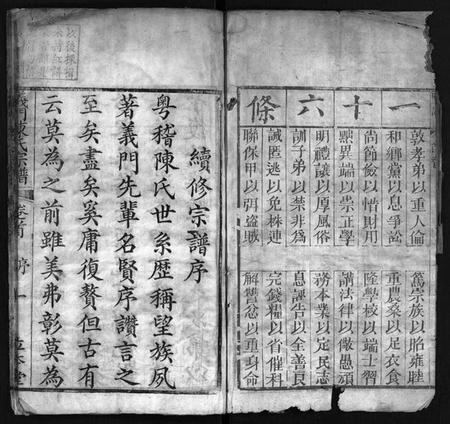 一十六條
敦孝弟以重人倫 篤宗族以昭雍睦
和鄉黨以息爭訟 重農桑以足衣食
尚節儉以惜財用 隆學校以端士習
黜異端以崇正學 講法律以儆愚頑
明禮讓以厚風俗 務本業以定民志
訓子弟以禁非為 息誣告以全善良
誡匿逃以免株連 完錢糧以省催科
聯保甲以弭盜賊 解讐忿以重身命
續修宗譜序
粵稽陳氏世系歷稱望族夙
著義門先輩名賢序讚言之
至矣盡矣奚庸復贅但古有
云莫為之前雖美弗彰莫為
門陳氏宗譜 卷首 序 一 本堂